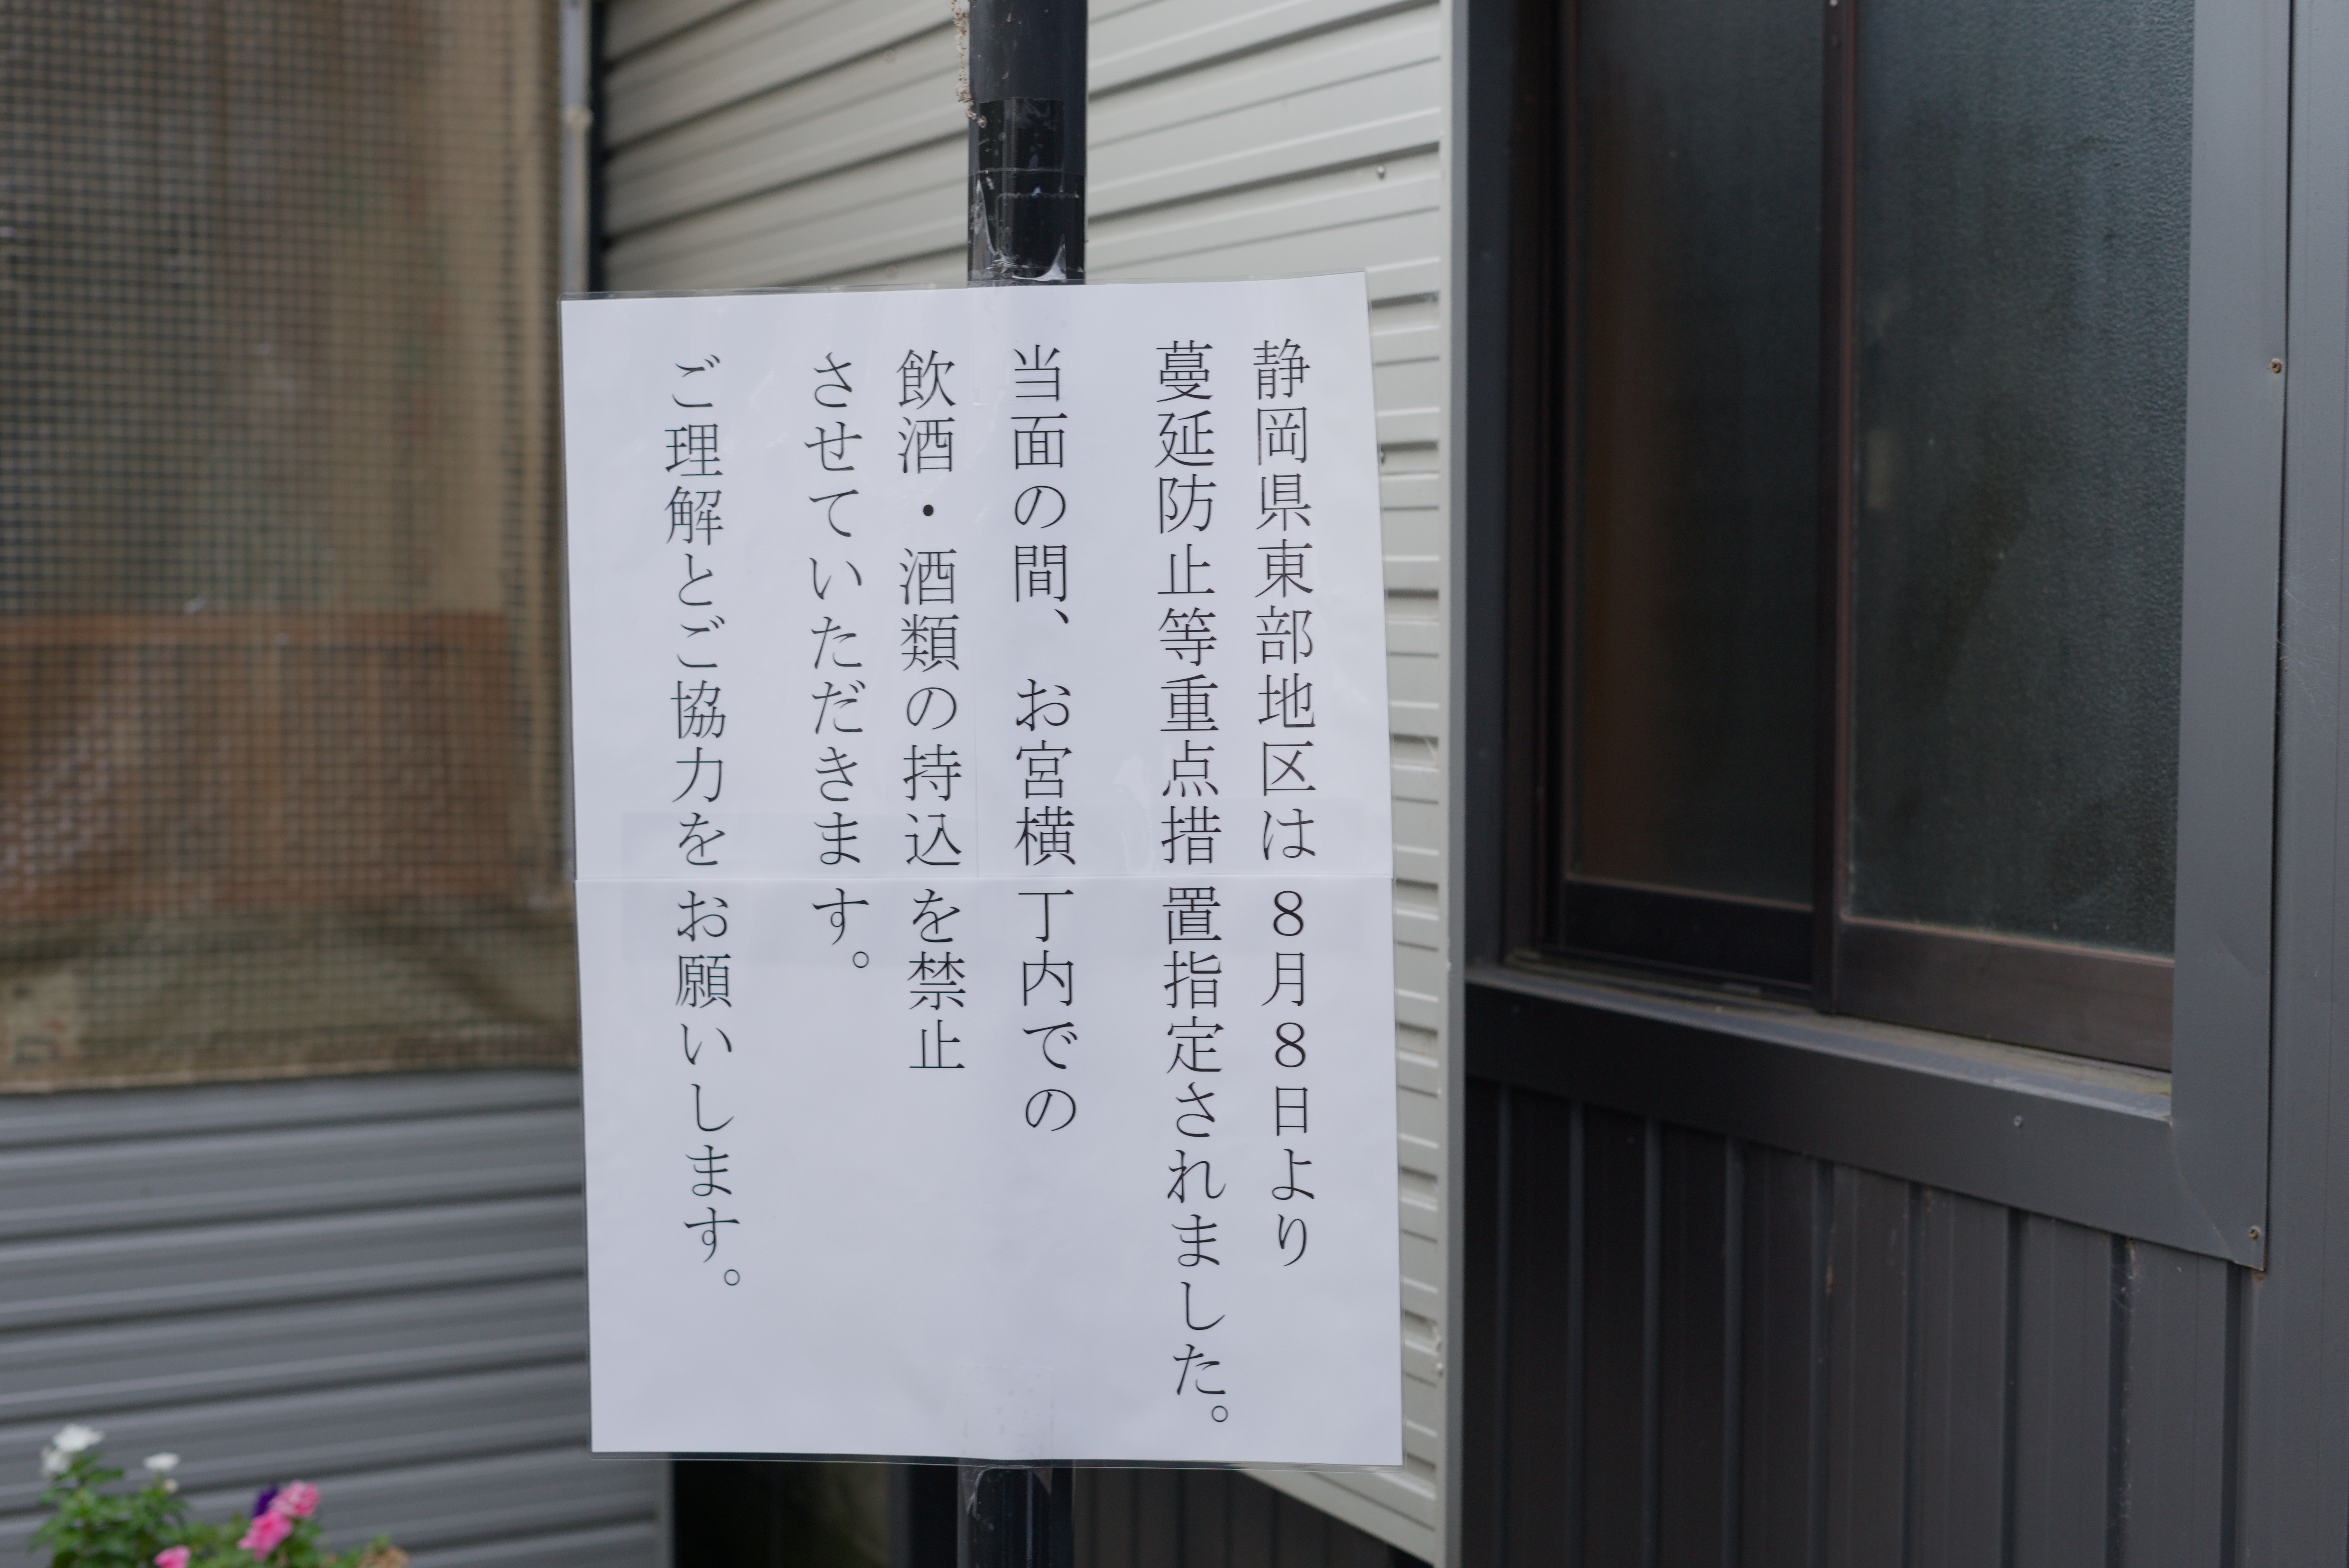 静岡県東部地区は８月８日より
蔓延防止等重点措置指定されました。
当面の間、お宮横丁内での
飲酒・酒類の持込を禁止
させていただきます。
ご理解とご協力をお願いします。